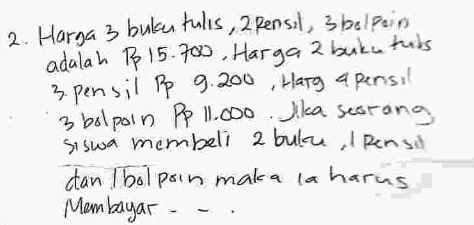 2. Harga 3 buku tulis, 2 Pensil, 3 bolpoin
adalah Rp 15.700, Harga 2 buku tulis
3 pensil Rp 9.200, Harg 4 pensil
3 bolpoin Rp 11.000. Jika seorang
siswa membeli 2 buku, 1 Pensil
dan 1 bolpoin maka ia harus
Membayar - - .